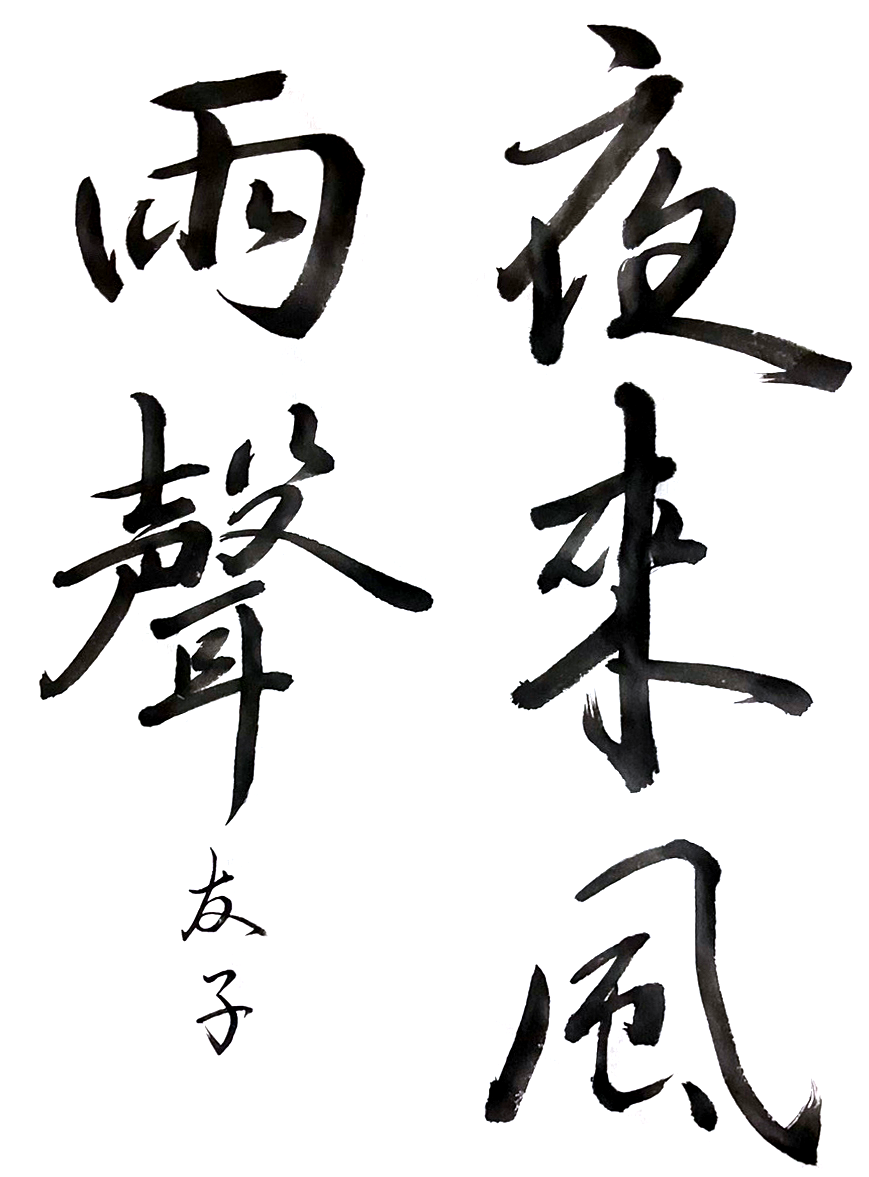 夜來風
雨聲
友子